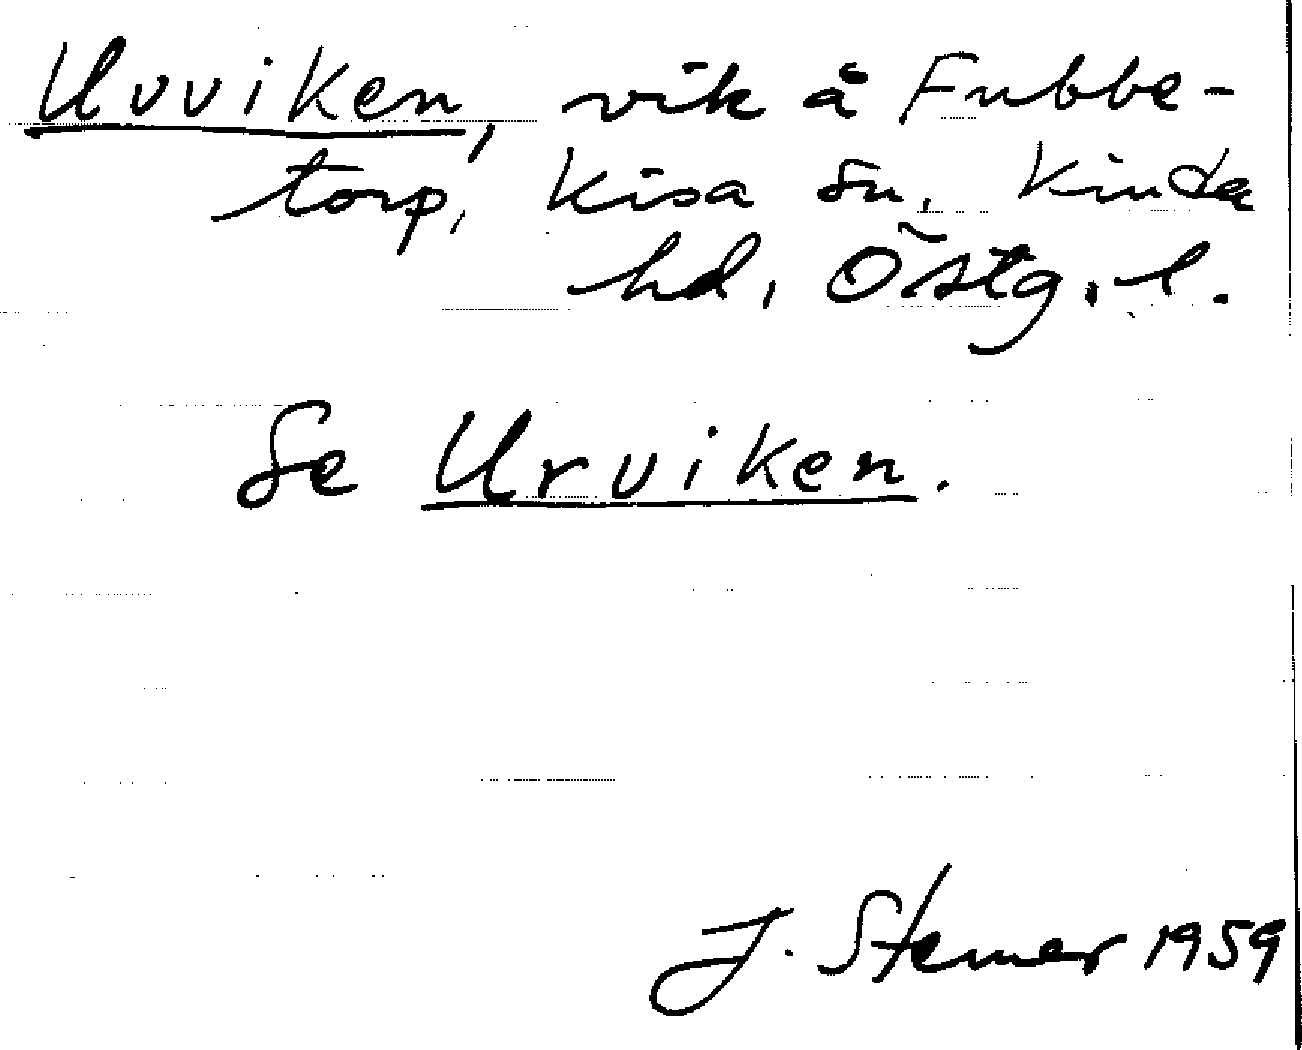 Uvviken, vik å Fubbe-
torp, Kisa sn, Kinda
hd, Östg. l.
Se Urviken.
J. Stemer 1959